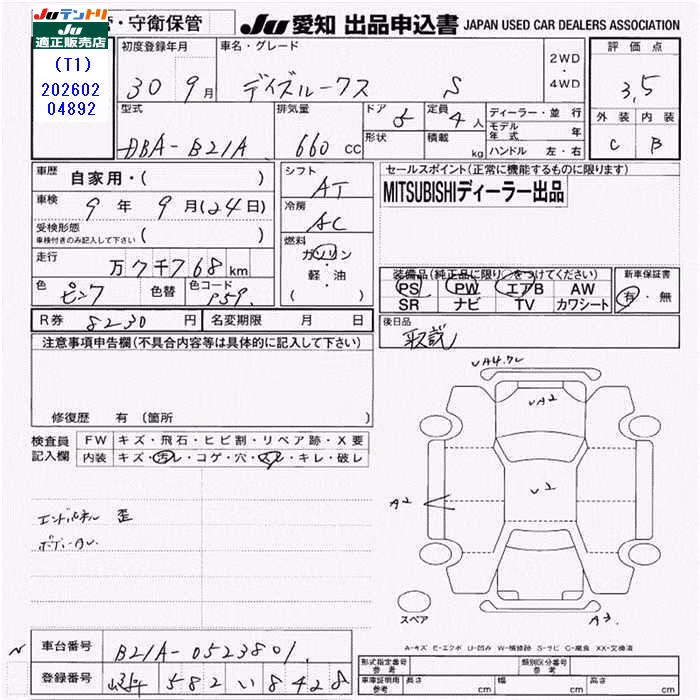 JUテントリ
JU
適正販売店
(T1)
202602
04892
・守衛保管
JU 愛知 出品申込書 JAPAN USED CAR DEALERS ASSOCIATION
初度登録年月 車名・グレード 2WD ・ 4WD 評価点
30 9月 デイズルークス S 3,5
型式 排気量 ドア 5 定員 4人 ディーラー・並行 外装 内装
DBA-B21A 660 CC 形状 積載 kg モデル年式 年 C B
ハンドル 左・右
車歴 自家用・( ) シフト AT セールスポイント(正常に機能するものに限ります)
車検 9年9月(24日) 冷房 AC MITSUBISHIディーラー出品
受検形態 ( )
車検付きのみ記入して下さい
燃料 ガソリン・軽・油 ( )
走行 万7千768km 装備品(純正品に限り○をつけてください) 新車保証書
色 ピンク 色替 色コード P59. PS PW エアB AW 有・無
SR ナビ TV カワシート
R券 8230円 名変期限 月 日 後日品
取説
注意事項申告欄(不具合内容等は具体的に記入して下さい)
修復歴 有 (箇所
検査員記入欄 FW キズ・飛石・ヒビ割・リペア跡・X要
内装 キズ・汚レ・コゲ・穴・スレ・キレ・破レ
エンドパネル 歪
UA2
U2
A2
A3
スペア
A-キズ E-エクボ U-凹み W-補修跡 S-サビ C-腐食 XX-交換済
車台番号 B21A-0523801.
登録番号 582 い 8428
形式指定番号 参考 類別区分番号 参考
車庫証明記載 参考 長さ cm 幅 cm 高さ cm